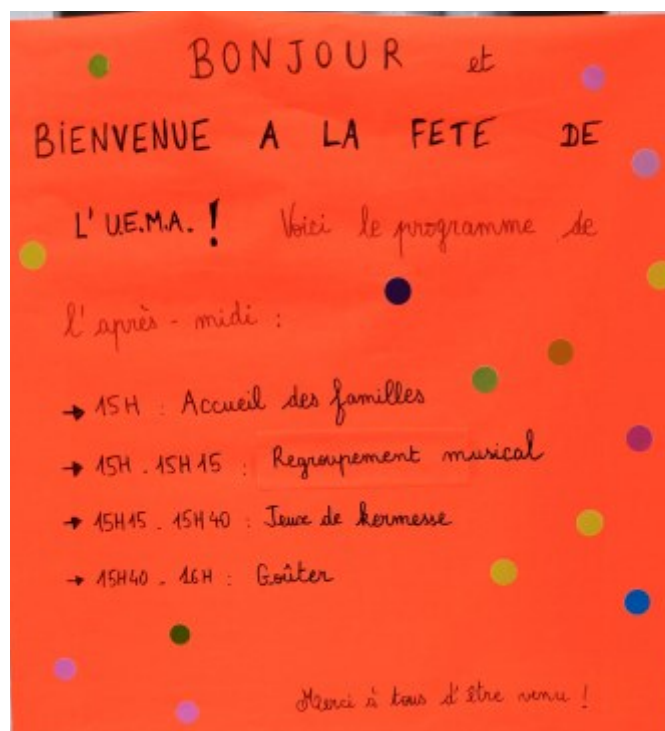 BONJOUR et
BIENVENUE A LA FETE DE
L' U.E.M.A. ! Voici le programme de
l'après-midi :
→ 15H : Accueil des familles
→ 15H - 15H15 : Regroupement musical
→ 15H15 - 15H40 : Jeux de kermesse
→ 15H40 - 16H : Goûter
Merci à tous d'être venu !